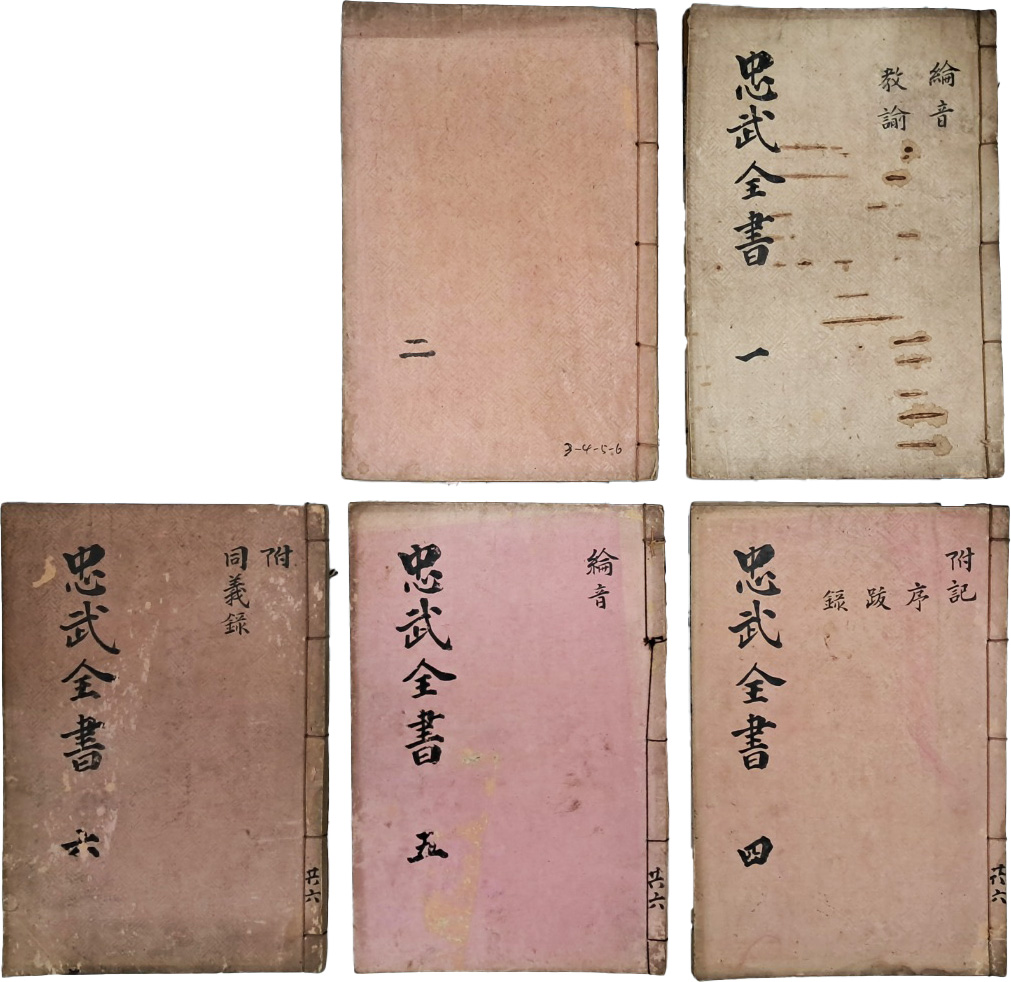 綸音
教諭
忠武全書 一
二
3-4-5-6
共六
附記
序
跋
錄
忠武全書 四
共六
綸音
忠武全書 五
共六
附
同義錄
忠武全書 六